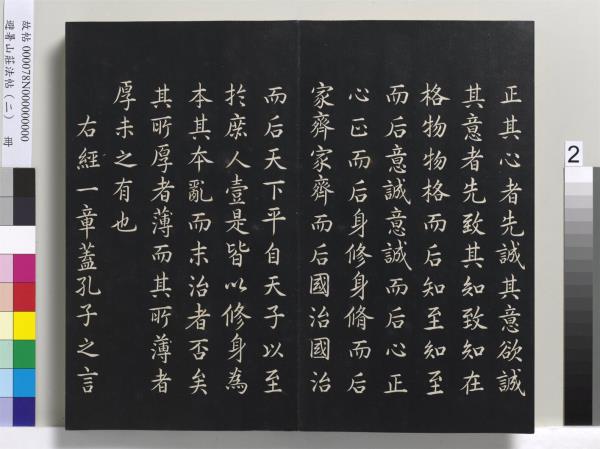 正其心者先誠其意欲誠
其意者先致其知致知在
格物物格而后知至知至
而后意誠意誠而后心正
心正而后身修身脩而后
家齊家齊而后國治國治
而后天下平自天子以至
於庶人壹是皆以修身為
本其本亂而末治者否矣
其所厚者薄而其所薄者
厚未之有也
右經一章蓋孔子之言
故帖000078N000000000
避暑山莊法帖(二) 冊
2